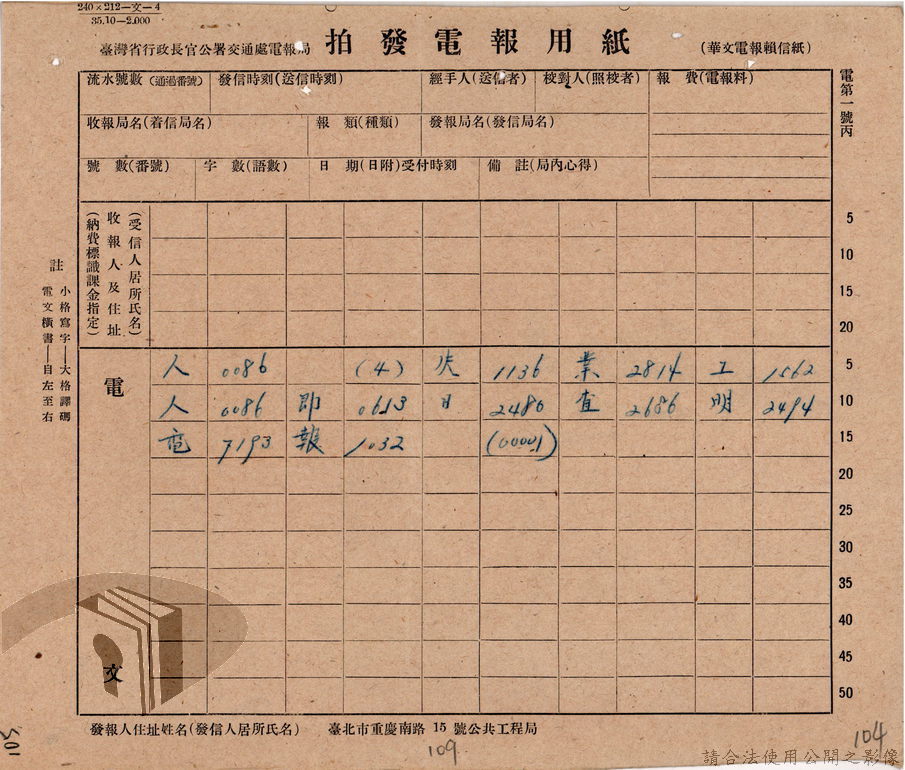 240×212—文—4
35.10—2.000
臺灣省行政長官公署交通處電報局
拍發電報用紙
(華文電報賴信紙)
流水號數(通過番號)
發信時刻(送信時刻)
經手人(送信者)
校對人(照校者)
報費(電報料)
收報局名(着信局名)
報類(種類)
發報局名(發信局名)
號數(番號)
字數(語數)
日期(日附)受付時刻
備註(局內心得)
電第一號丙
(受信人居所氏名)
收報人及住址
(納費標識課金指定)
5
10
15
20
註
小格寫字—大格譯碼
電文橫書—自左至右
電文
人 0086 (4) 失 1136 業 2814 工 1562 5
人 0086 即 0613 日 2480 查 2686 明 2494 10
電 7193 報 1032 (00001) 15
20
25
30
35
40
45
50
發報人住址姓名(發信人居所氏名) 臺北市重慶南路 15 號公共工程局
105
109
104
請合法使用公開之影像